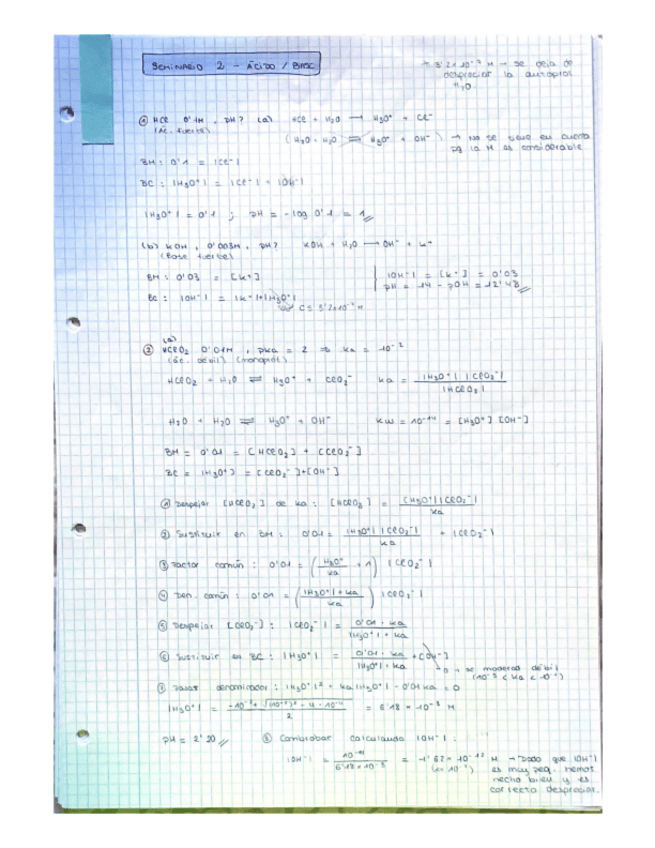 SEMINARIO 2 - ÁCIDO / BASE
3'2×10⁻⁷ M → se deja de
despreciar la autoprot.
H₂O.
① HCl 0'1M, pH? (a) HCl + H₂O → H₃O⁺ + Cl⁻
(Ác. fuerte)
(H₂O + H₂O ⇌ H₃O⁺ + OH⁻) → No se tiene en cuenta
pq la M es considerable
BM: 0'1 = |Cl⁻|
BC: |H₃O⁺| = |Cl⁻| + |OH⁻|
|H₃O⁺| = 0'1 ; pH = -log 0'1 = 1
(b) KOH, 0'003M, pH? KOH + H₂O → OH⁻ + K⁺
(Base fuerte)
BM: 0'03 = [K⁺]
|OH⁻| = [K⁺] = 0'03
pH = 14 - pOH = 12'48
BC: |OH⁻| = |K⁺| + |H₃O⁺|
C ≤ 3'2×10⁻⁷ M
(a)
② HClO₂ 0'01M, pKa = 2 ⇒ Ka = 10⁻²
(ác. débil) (monoprót)
HClO₂ + H₂O ⇌ H₃O⁺ + ClO₂⁻ Ka = |H₃O⁺| |ClO₂⁻| / |HClO₂|
H₂O + H₂O ⇌ H₃O⁺ + OH⁻ Kw = 10⁻¹⁴ = [H₃O⁺] [OH⁻]
BM = 0'01 = [HClO₂] + [ClO₂⁻]
BC = |H₃O⁺] = [ClO₂⁻] + [OH⁻]
① Despejar [HClO₂] de Ka : [HClO₂] = [H₃O⁺| |ClO₂⁻| / Ka
② Sustituir en BM : 0'01 = |H₃O⁺| |ClO₂⁻| / Ka + |ClO₂⁻|
③ Factor común : 0'01 = (H₃O⁺ / Ka + 1) |ClO₂⁻|
④ Den. común : 0'01 = (|H₃O⁺| + Ka / Ka) |ClO₂⁻|
⑤ Despejar [ClO₂⁻] : |ClO₂⁻| = 0'01 · Ka / |H₃O⁺| + Ka
⑥ Sustituir en BC : |H₃O⁺| = 0'01 · Ka / |H₃O⁺| + Ka + [OH⁻]
→ 0 → se moderad. débil
⑦ Pasar denominador : |H₃O⁺|² + Ka |H₃O⁺| - 0'01 Ka = 0
|H₃O⁺| = -10⁻² + √(10⁻²)² - 4 · 10⁻⁴ / 2 = 6'18 × 10⁻³ M
pH = 2'20 ⑧ Comprobar calculando |OH⁻| :
|OH⁻| = 10⁻¹⁴ / 6'18×10⁻³ = 1'62× 10⁻¹² M → Dado que |OH⁻|
es muy peq. hemos
hecho bien y es
correcto despreciar.